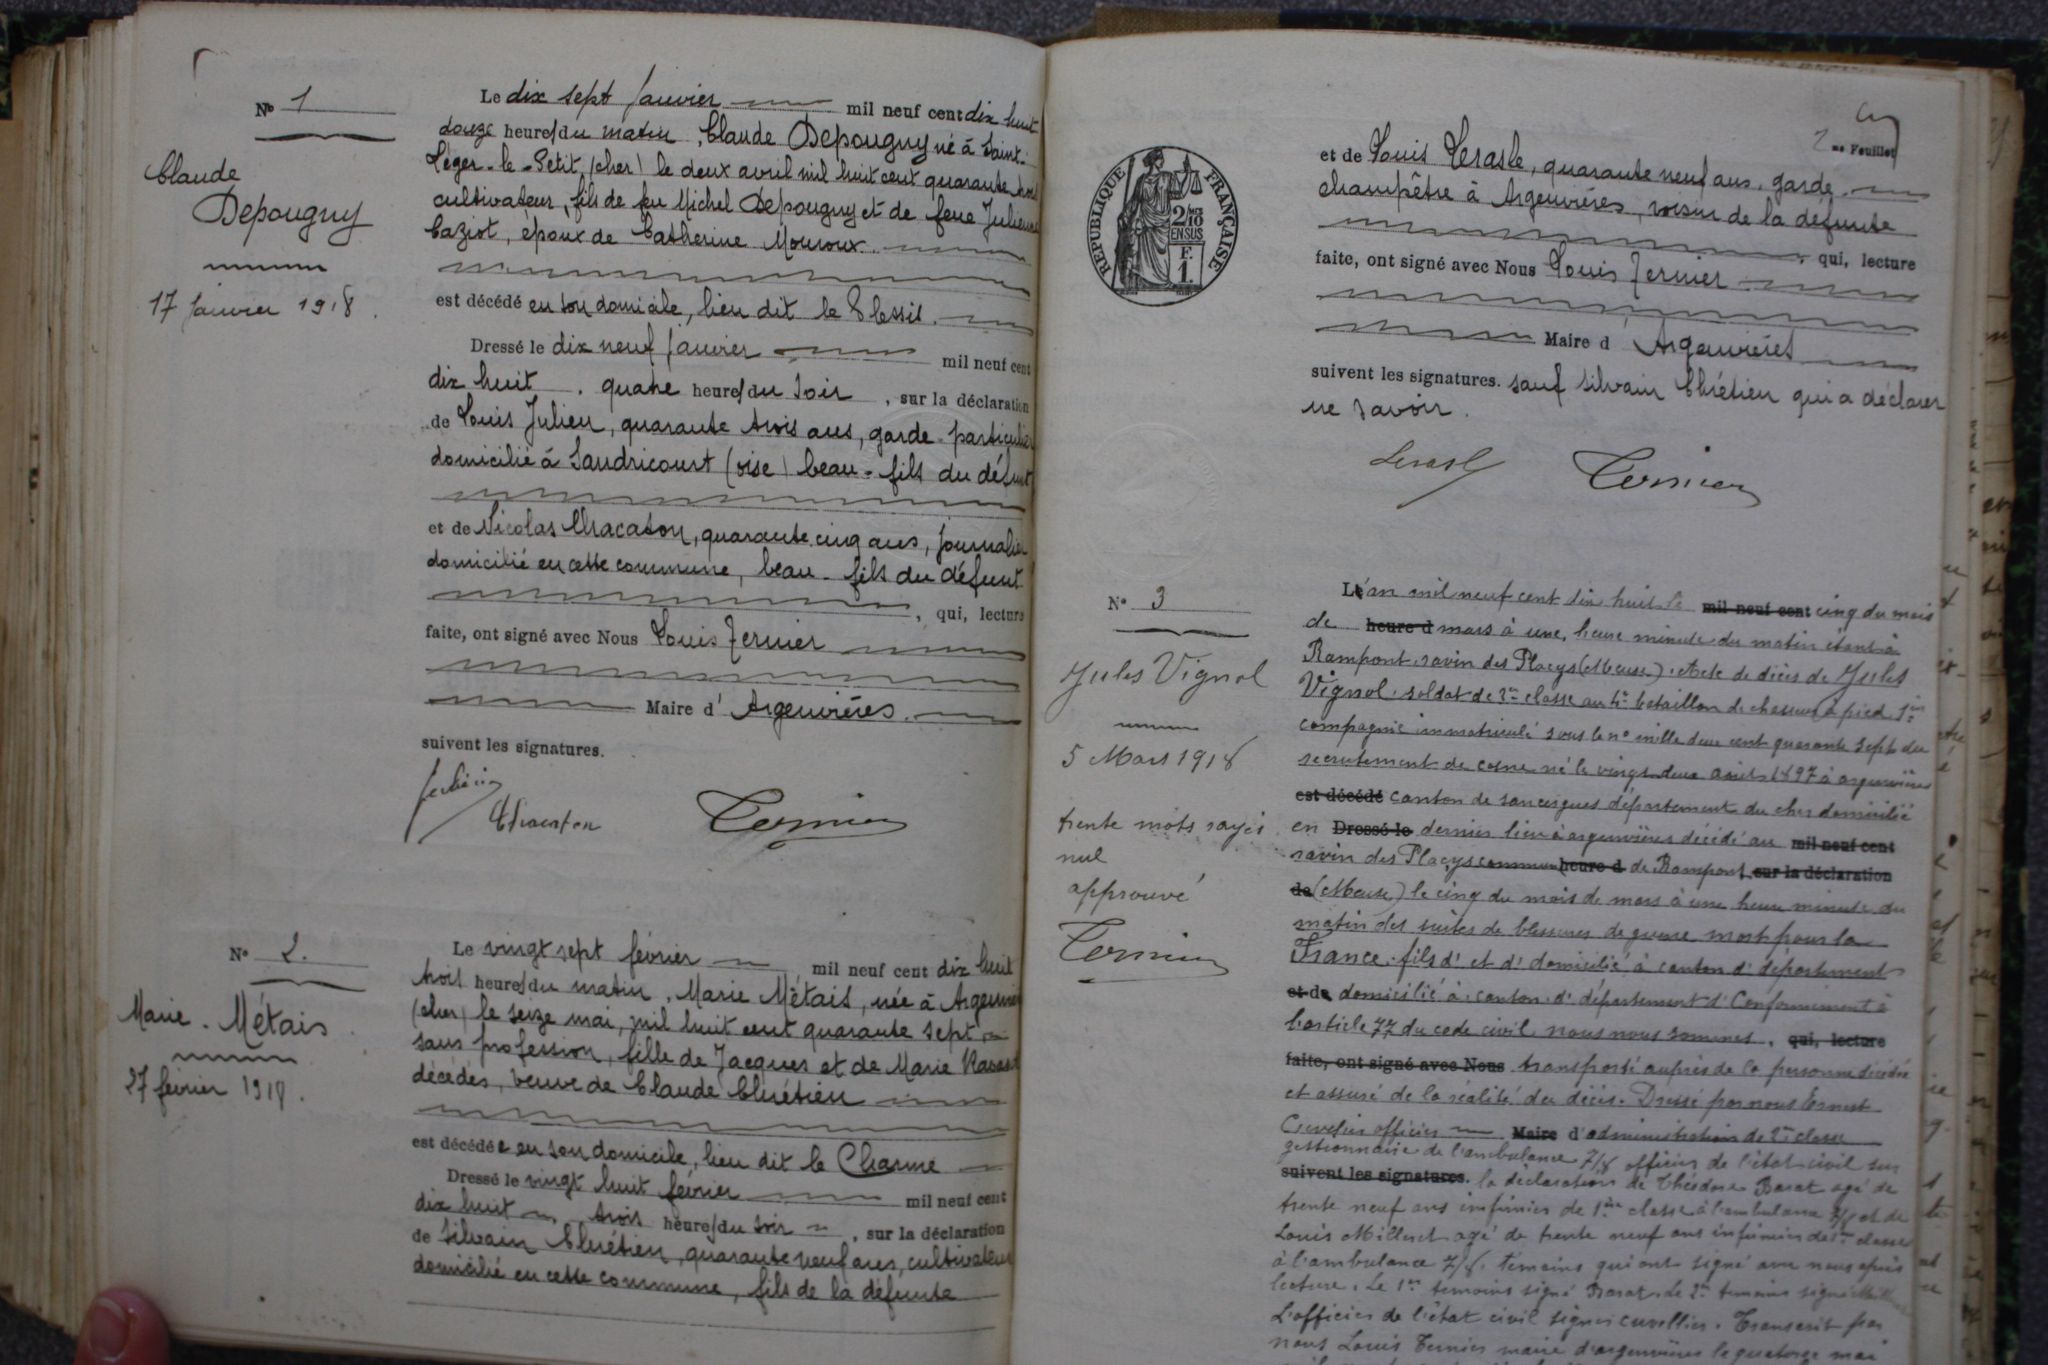 N° 1
Claude
Depougny
17 Janvier 1918.
Le dix sept Janvier mil neuf cent dix huit
douze heures du matin, Claude Depougny né à Saint-
Léger-le-Petit (cher) le deux avril mil huit cent quarante trois
cultivateur, fils de feu Michel Depougny et de feue Julienne
Caziot, époux de Catherine Mouroux
est décédé en son domicile, lieu dit le Plessis.
Dressé le dix neuf Janvier mil neuf cent
dix huit, quatre heures du soir, sur la déclaration
de Louis Julien, quarante trois ans, garde-particulier
domicilié à Sandricourt (oise) beau-fils du défunt
et de Nicolas Chacaton, quarante cinq ans, journalier
domicilié en cette commune, beau-fils du défunt
, qui, lecture
faite, ont signé avec Nous Louis Ternier
Maire d' Argenvières.
suivent les signatures.
Chacaton Ternier
N° 2.
Marie Métais
27 février 1918.
Le vingt sept février mil neuf cent dix huit
trois heures du matin, Marie Métais, née à Argenvières
(cher) le seize mai, mil huit cent quarante sept
sans profession, fille de Jacques et de Marie
décédés, veuve de Claude Chrétien
est décédée en son domicile, lieu dit le Charme
Dressé le vingt huit février mil neuf cent
dix huit trois heures du soir, sur la déclaration
de Silvain Chrétien, quarante neuf ans, cultivateur
domicilié en cette commune, fils de la défunte
2 me Feuillet
RÉPUBLIQUE FRANÇAISE
2/10
EN SUS
F.
1
et de Louis Lerasle, quarante neuf ans, garde
champêtre à Argenvières, voisin de la défunte
, qui, lecture
faite, ont signé avec Nous Louis Ternier
Maire d' Argenvières
suivent les signatures. sauf Silvain Chrétien qui a déclarer
ne savoir.
Lerasle Ternier
N° 3
Jules Vignol
5 Mars 1918
trente mots rayés
nul
approuvé
Ternier
L'an mil neuf cent dix huit le mil neuf cent cinq du mois
de heure d mars à une heure minute du matin étant à
Rampont ravin des Placys (Meuse). Acte de décès de Jules
Vignol soldat de 2e classe au 4e bataillon de chasseurs à pied 1ère
compagnie immatriculé sous le n° mille deux cent quarante sept du
recrutement de cosne né le vingt deux août 1897 à argenvières
est décédé canton de sancergues département du cher domicilié
en Dressé le dernier lieu à argenvières décédé au mil neuf cent
ravin des Placys commune heure d de Rampont sur la déclaration
de (Meuse) le cinq du mois de mars à une heure minute du
matin des suites de blessures de guerre mort pour la
France. fils d' et d' domicilié à canton d' département
et de domicilié à canton d' département d' Conformément à
l'article 77 du code civil nous nous sommes, qui, lecture
faite, ont signé avec Nous transporté auprès de la personne décédée
et assuré de la réalité du décès. Dressé par nous Ernest
Cuvelier officier Maire d'administration de 2e classe
gestionnaire de l'ambulance 7/8 officier de l'état civil sur
suivent les signatures. la déclaration de Théodore Barat agé de
trente neuf ans infirmier de 1ère classe à l'ambulance 7/8 et de
Louis agé de trente neuf ans infirmier de classe
à l'ambulance 7/8, témoins qui ont signé avec nous après
lecture. Le 1er témoins signé Barat. Le 2e témoins signé
L'officier de l'état civil signé cuvellier. Transcrit par
nous Louis Ternier maire d'argenvières le quatorze mai